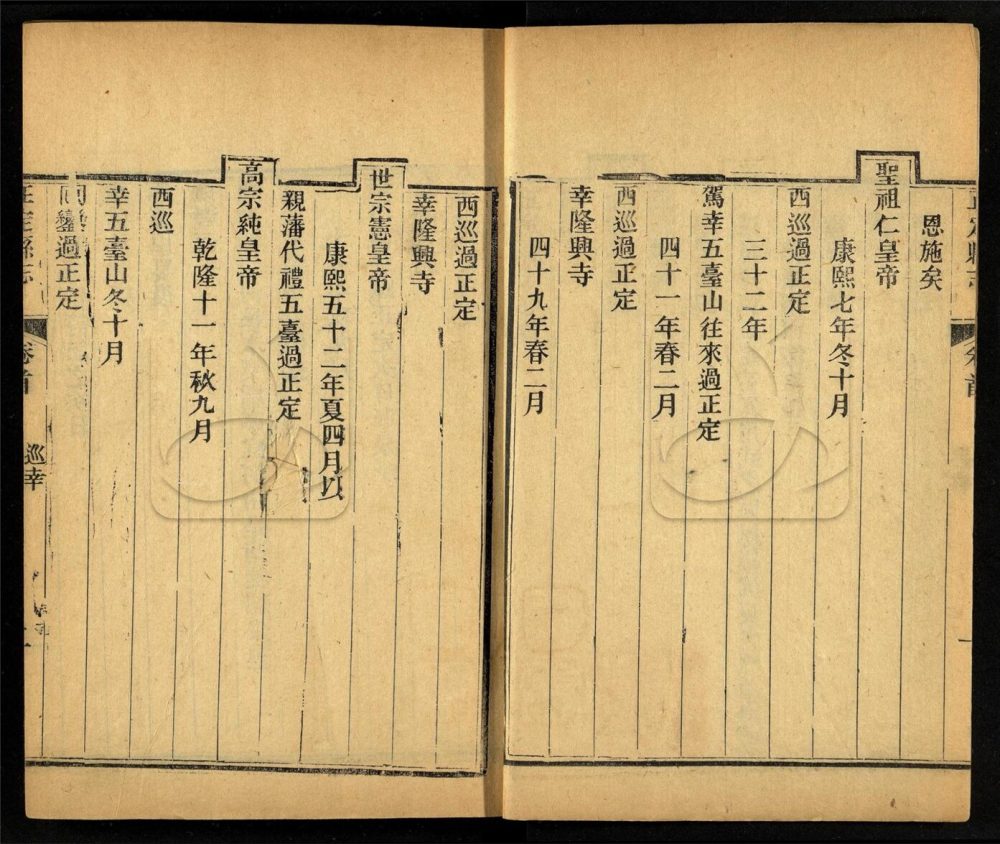 正定縣志
卷首
恩施矣
聖祖仁皇帝
康熙七年冬十月
西巡過正定
三十二年
駕幸五臺山往來過正定
四十一年春二月
西巡過正定
幸隆興寺
四十九年春二月
西巡過正定
幸隆興寺
世宗憲皇帝
康熙五十二年夏四月以
親藩代禮五臺過正定
高宗純皇帝
乾隆十一年秋九月
西巡
幸五臺山冬十月
回鑾過正定
正定縣志
卷首
巡幸